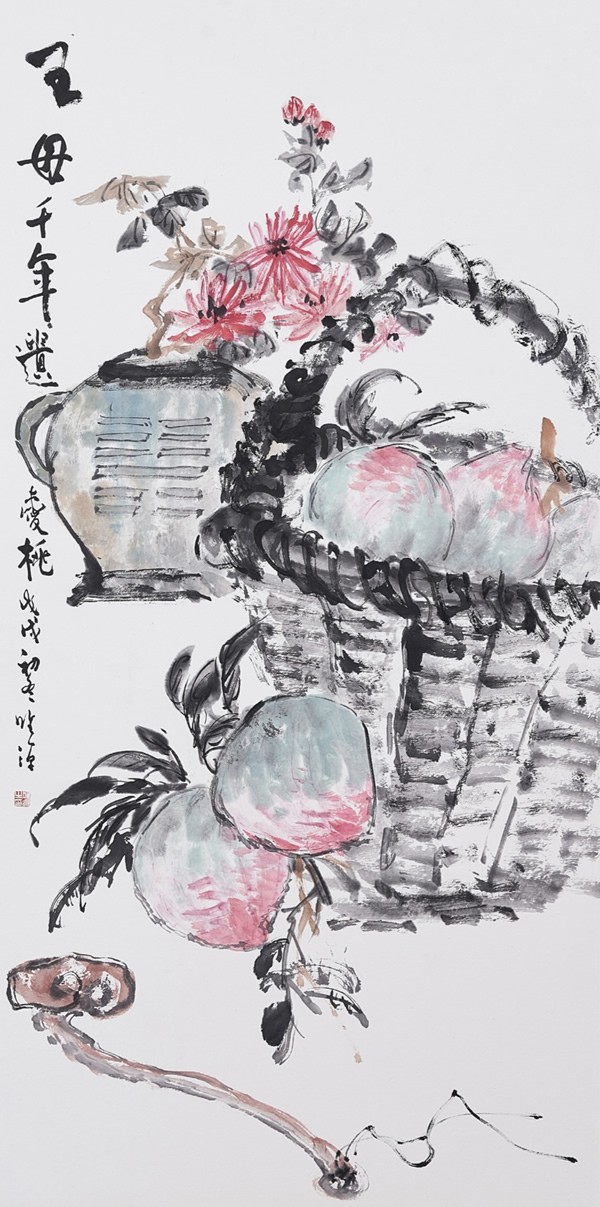 王母千年遺愛桃戊戌初冬